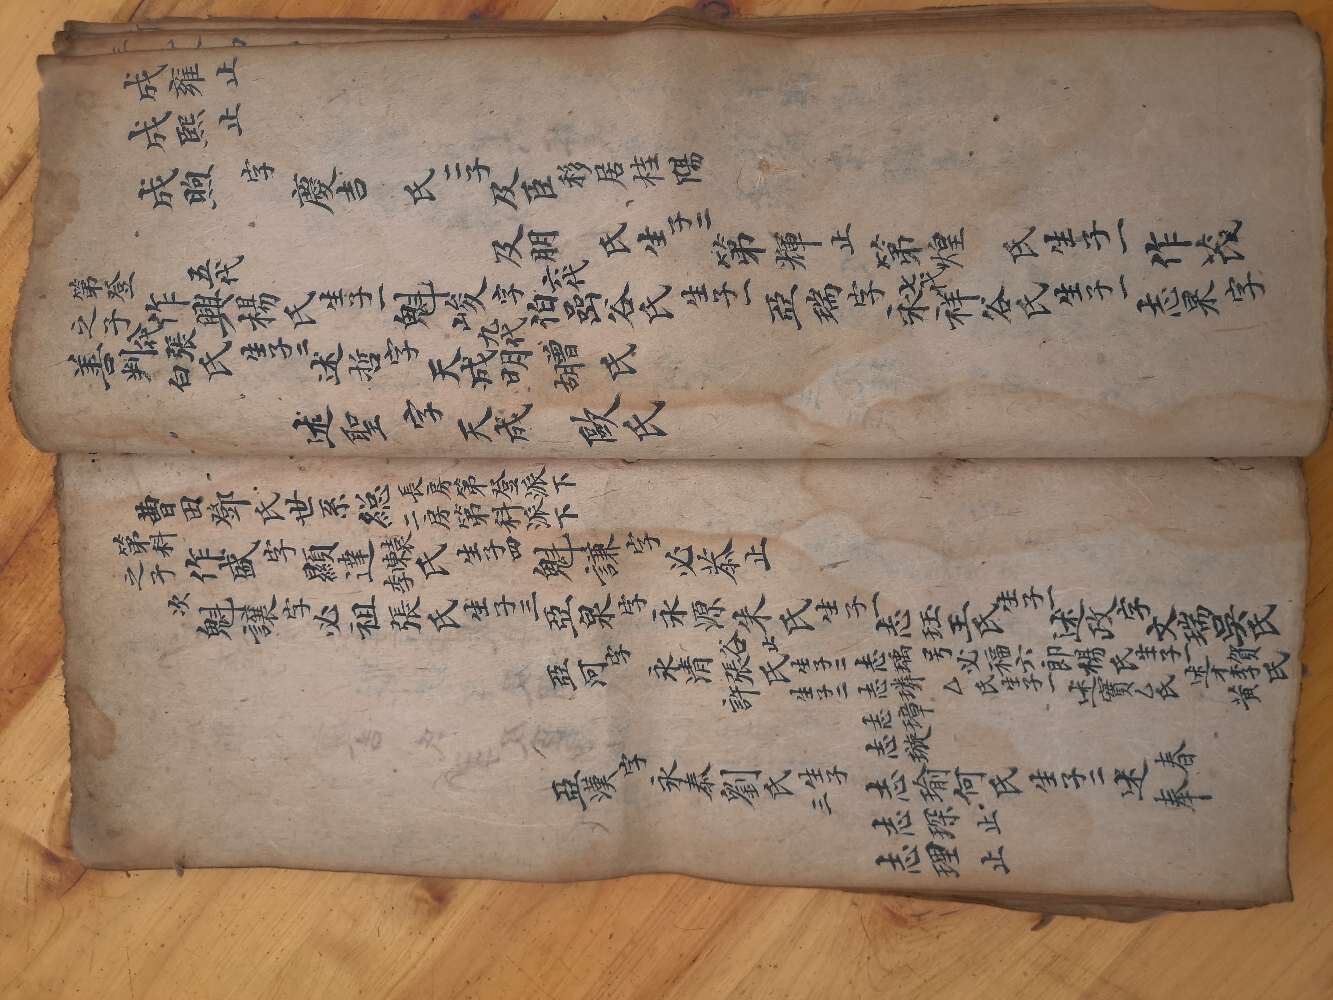 成雍止
成熙止
成煦 字慶吉 氏二子 及臣移居桂陽
及朋 氏生子二 第輝止 第煌 氏生子一 作
第登之子 作興 五代 楊氏生子一 魁峻字伯强 六代 谷氏生子一 亞瑞字永祥 七代 谷氏生子一 志果字
善判 八代 白張氏生子二 述哲字天成明 九代 胡曾氏
述聖字天成 歐氏
曹田鄧氏世系総 長房第登派下
二房第科派下
第科之子 作盛字顯達 李陳袁氏生子四 魁謙字必恭止
次魁讓字必祖張氏生子三 亞泉字永源朱氏生子一 志珏王氏生子一 述政字文瑞吳氏
亞河字永清許張谷氏止 生子二 志瑀号必福六郎楊氏生子一 述才李賀黃氏
生子二 志璘 氏生子一 述寶 氏
志璋
志璇
亞漢字永泰劉氏生子三 志瑜何氏生子二 述春
述奉
志琛止
志理止